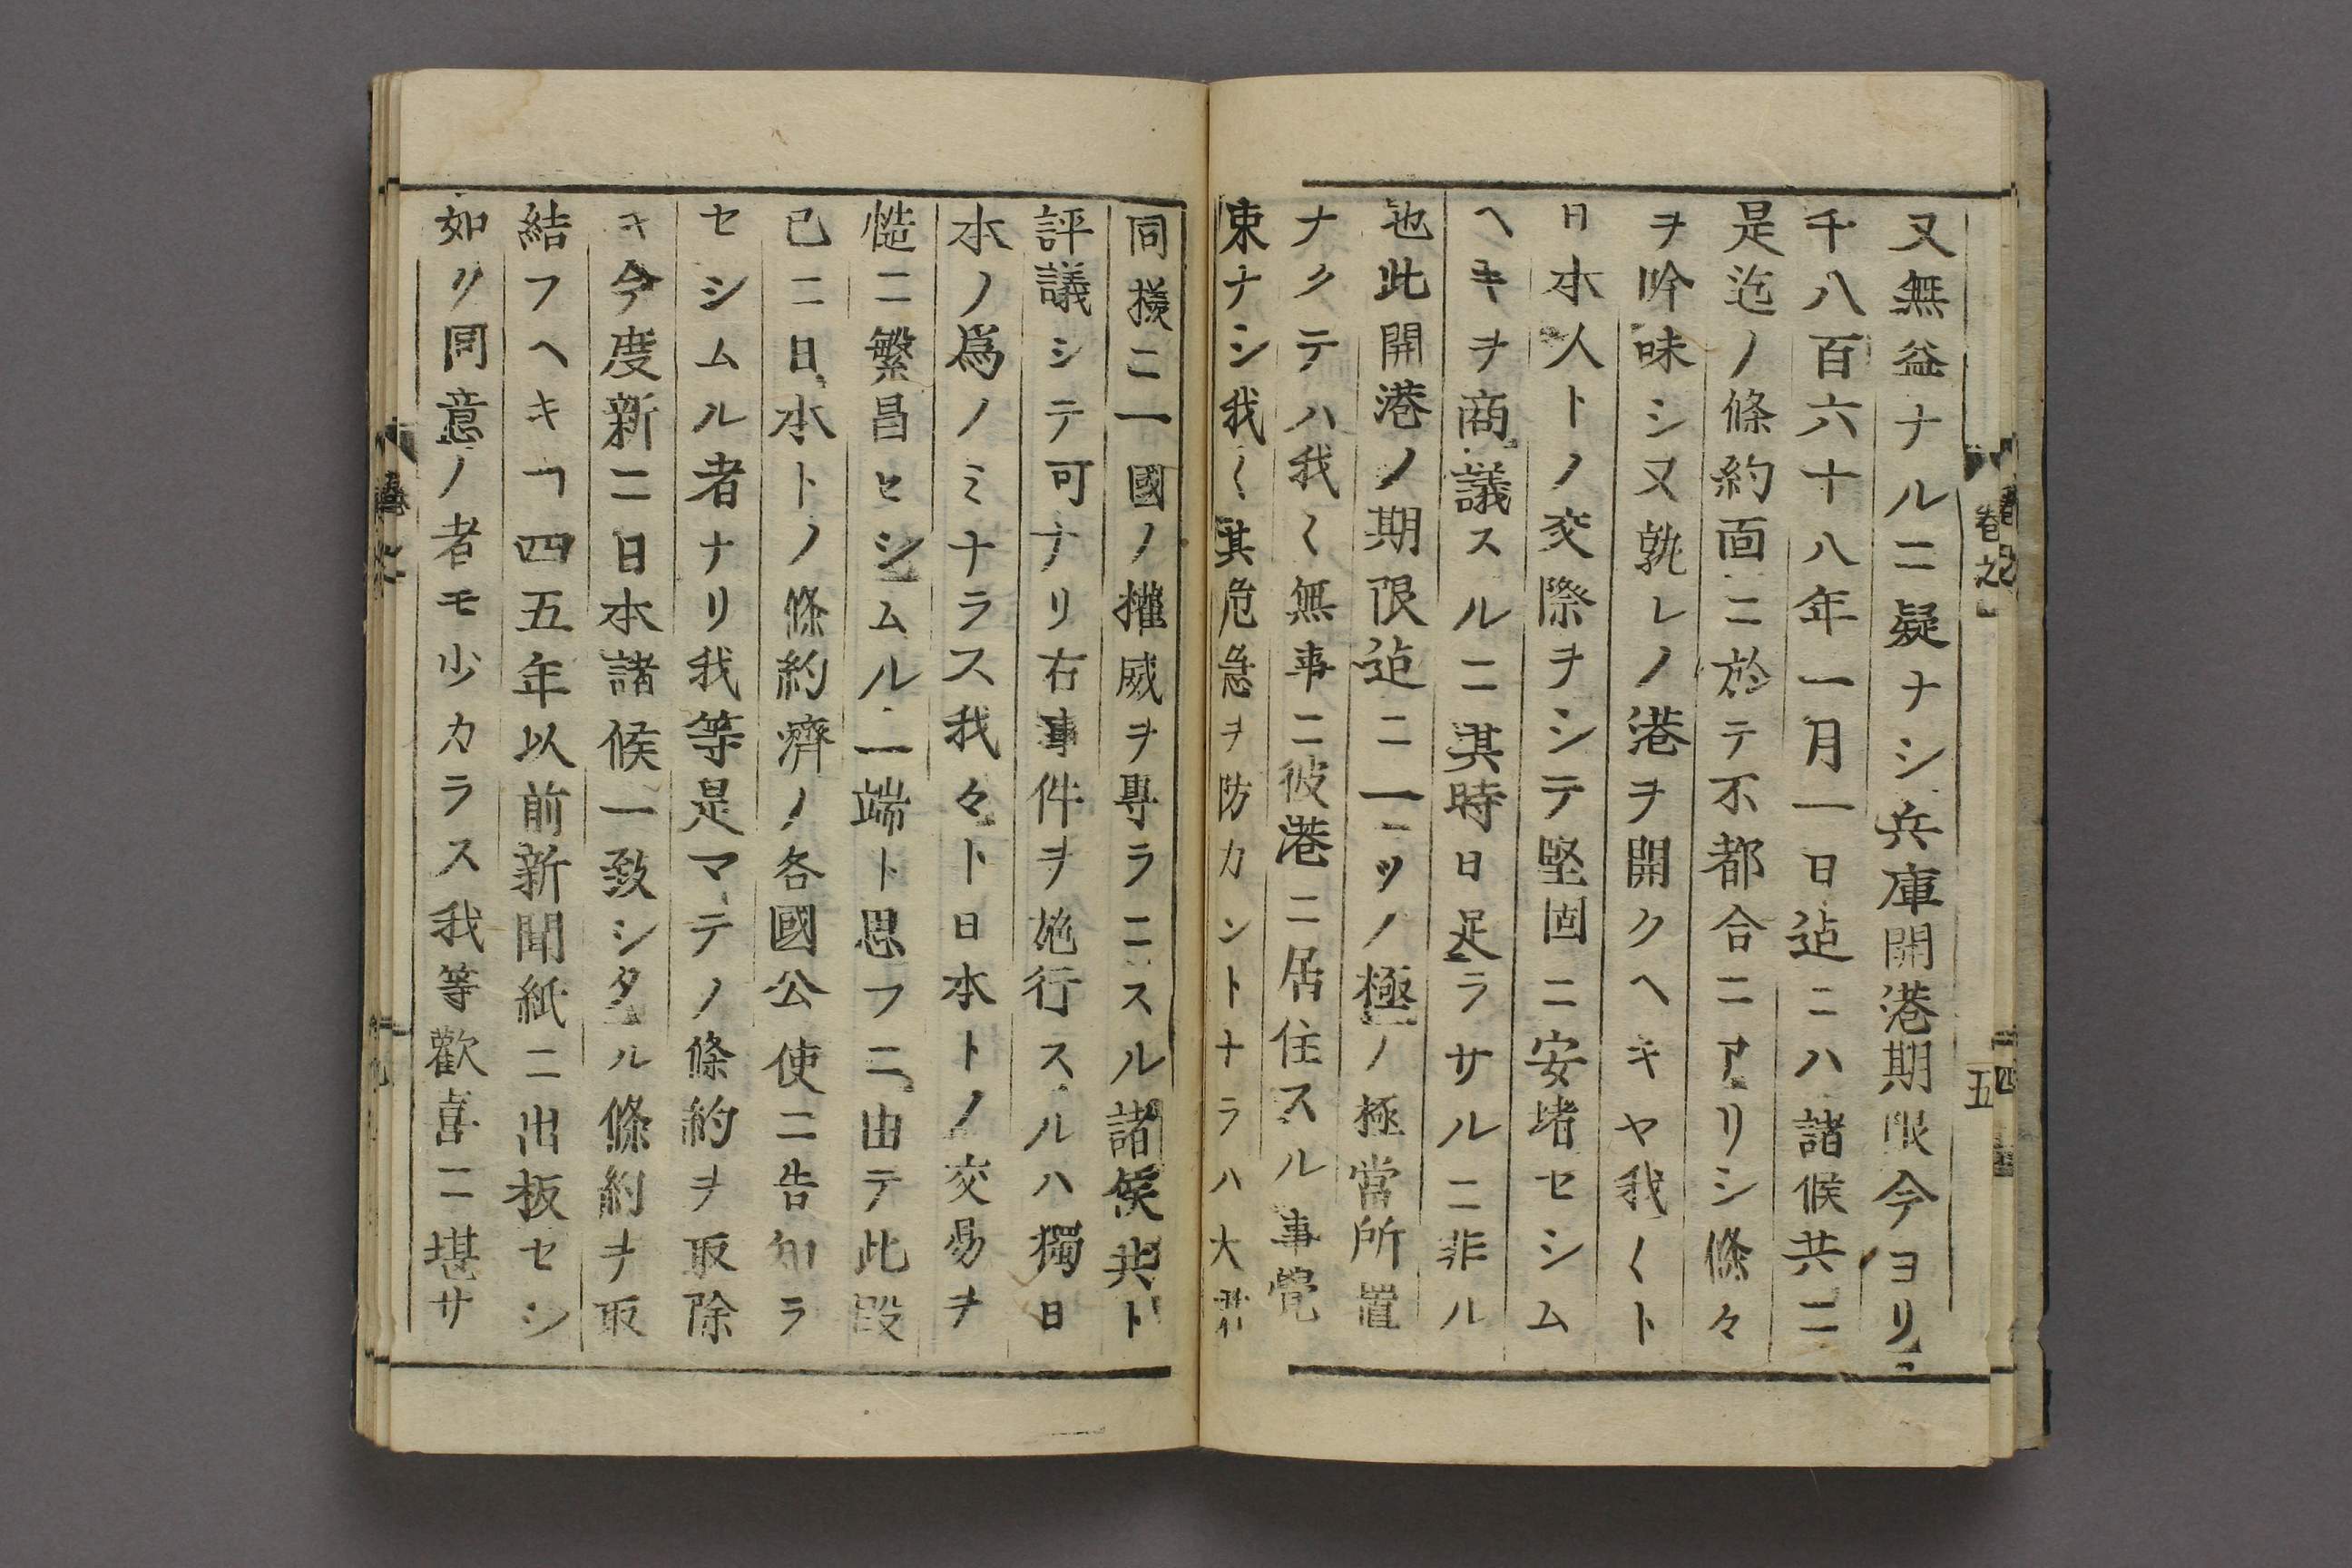 又無益ナルニ疑ナシ兵庫開港期限今ヨリ
千八百六十八年一月一日迠ニハ諸候共ニ
是迄ノ條約面ニ於テ不都合ニアリシ條々
ヲ吟味シ又孰レノ港ヲ開クヘキヤ我〱ト
日本人トノ交際ヲシテ堅固ニ安堵セシム
ヘキヲ商議スルニ其時日足ラサルニ非ル
也此開港ノ期限迠ニ一ツノ極ノ極當所置
ナクテハ我〱無事ニ彼港ニ居住スル事覺
束ナシ我〱其危急ヲ防カントナラハ大君
同様ニ一國ノ權威ヲ專ラニスル諸侯共ト
評議シテ可ナリ右事件ヲ施行スルハ獨日
本ノ爲ノミナラス我々ト日本トノ交易ヲ
慥ニ繁昌セシムル一端ト思フニ由テ此段
已ニ日本トノ條約濟ノ各國公使ニ告知ラ
セシムル者ナリ我等是マテノ條約ヲ取除
キ今度新ニ日本諸候一致シタル條約ヲ取
結フヘキヿ四五年以前新聞紙ニ出板セシ
如リ同意ノ者モ少カラス我等歡喜ニ堪サ
卷之一
五